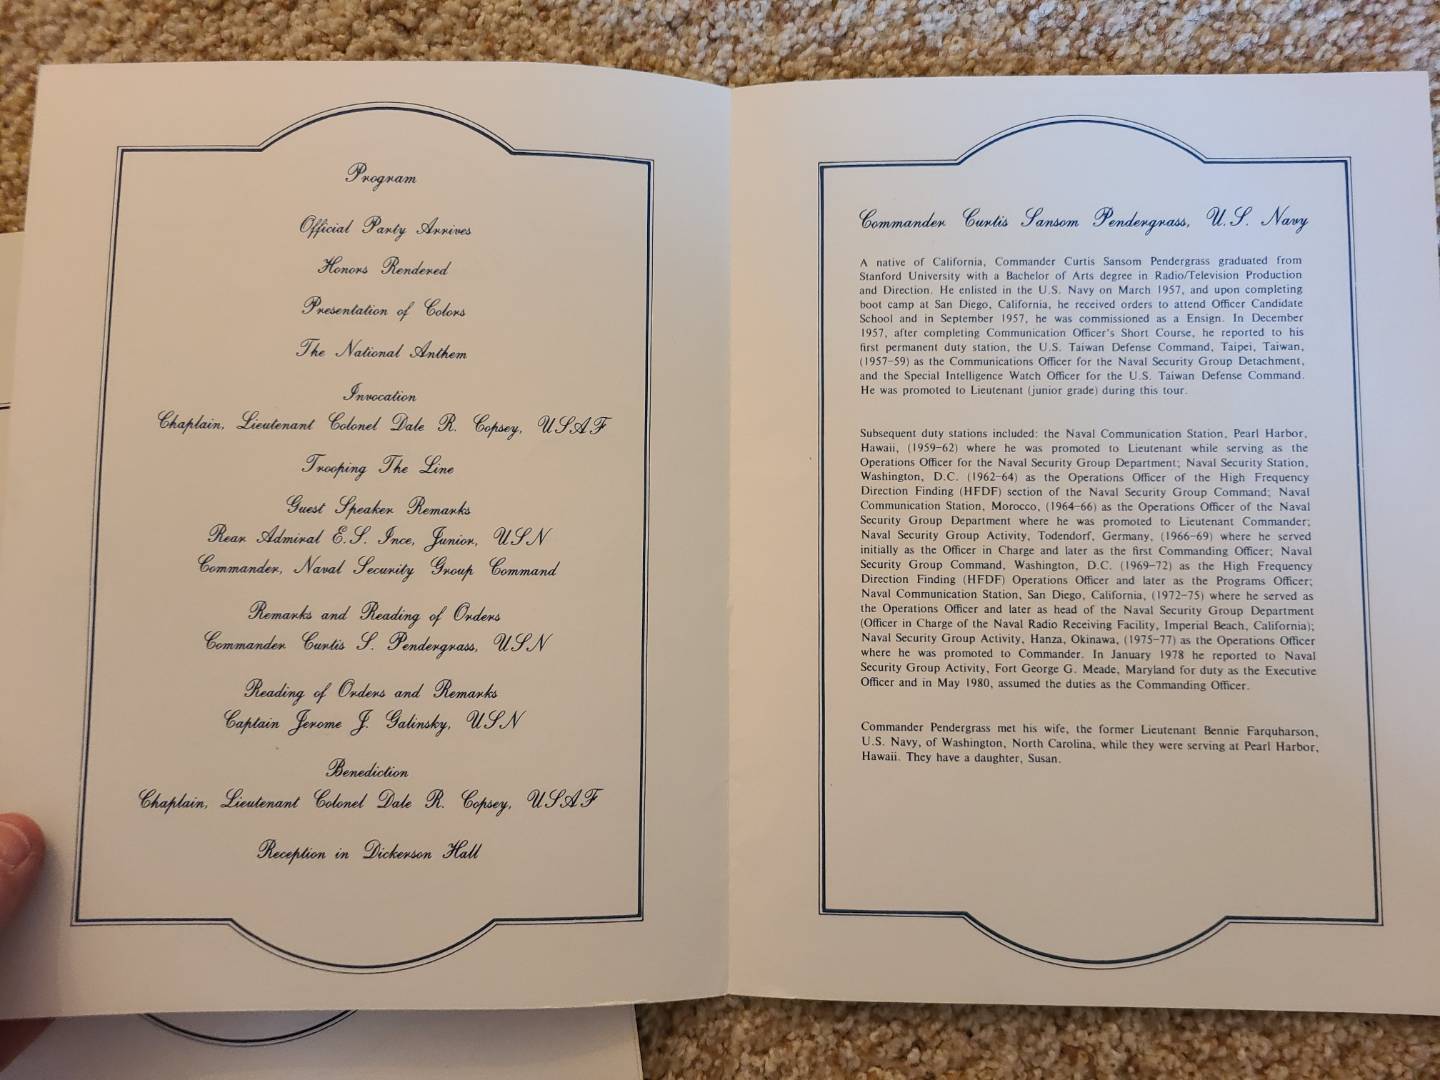 Program
Official Party Arrives
Honors Rendered
Presentation of Colors
The National Anthem
Invocation
Chaplain, Lieutenant Colonel Dale R. Copsey, USAF
Trooping The Line
Guest Speaker Remarks
Rear Admiral E.S. Ince, Junior, USN
Commander, Naval Security Group Command
Remarks and Reading of Orders
Commander Curtis S. Pendergrass, USN
Reading of Orders and Remarks
Captain Jerome J. Galinsky, USN
Benediction
Chaplain, Lieutenant Colonel Dale R. Copsey, USAF
Reception in Dickerson Hall
Commander Curtis Sansom Pendergrass, U.S. Navy
A native of California, Commander Curtis Sansom Pendergrass graduated from
Stanford University with a Bachelor of Arts degree in Radio/Television Production
and Direction. He enlisted in the U.S. Navy on March 1957, and upon completing
boot camp at San Diego, California, he received orders to attend Officer Candidate
School and in September 1957, he was commissioned as a Ensign. In December
1957, after completing Communication Officer's Short Course, he reported to his
first permanent duty station, the U.S. Taiwan Defense Command, Taipei, Taiwan,
(1957-59) as the Communications Officer for the Naval Security Group Detachment,
and the Special Intelligence Watch Officer for the U.S. Taiwan Defense Command.
He was promoted to Lieutenant (junior grade) during this tour.
Subsequent duty stations included: the Naval Communication Station, Pearl Harbor,
Hawaii, (1959-62) where he was promoted to Lieutenant while serving as the
Operations Officer for the Naval Security Group Department; Naval Security Station,
Washington, D.C. (1962-64) as the Operations Officer of the High Frequency
Direction Finding (HFDF) section of the Naval Security Group Command; Naval
Communication Station, Morocco, (1964-66) as the Operations Officer of the Naval
Security Group Department where he was promoted to Lieutenant Commander;
Naval Security Group Activity, Todendorf, Germany, (1966-69) where he served
initially as the Officer in Charge and later as the first Commanding Officer; Naval
Security Group Command, Washington, D.C. (1969-72) as the High Frequency
Direction Finding (HFDF) Operations Officer and later as the Programs Officer;
Naval Communication Station, San Diego, California, (1972-75) where he served as
the Operations Officer and later as head of the Naval Security Group Department
(Officer in Charge of the Naval Radio Receiving Facility, Imperial Beach, California);
Naval Security Group Activity, Hanza, Okinawa, (1975-77) as the Operations Officer
where he was promoted to Commander. In January 1978 he reported to Naval
Security Group Activity, Fort George G. Meade, Maryland for duty as the Executive
Officer and in May 1980, assumed the duties as the Commanding Officer.
Commander Pendergrass met his wife, the former Lieutenant Bennie Farquharson,
U.S. Navy, of Washington, North Carolina, while they were serving at Pearl Harbor,
Hawaii. They have a daughter, Susan.